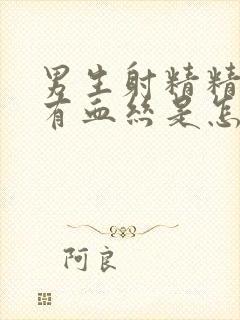 男生射精精
有血丝是怎
阿良